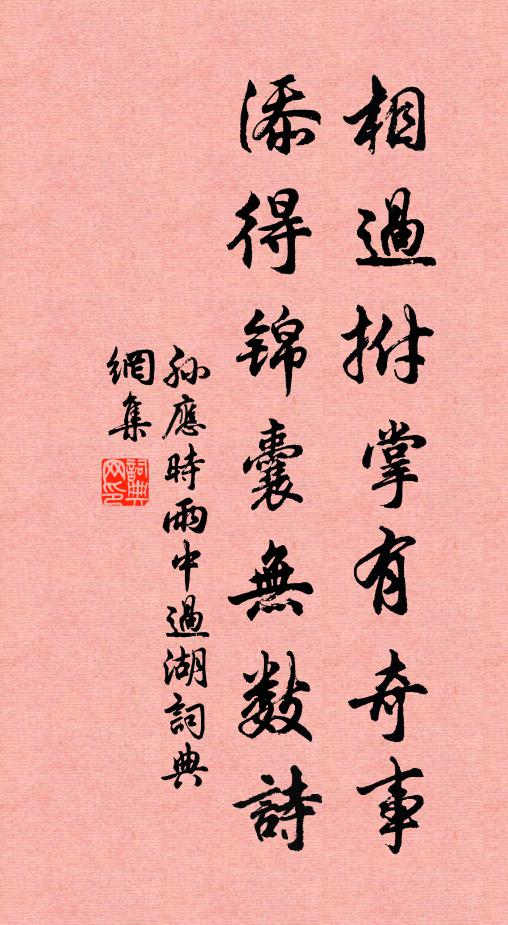 相過拊掌有奇事
添得錦囊無數詩
孫應時雨中過湖詞典
網集
詞典
网印